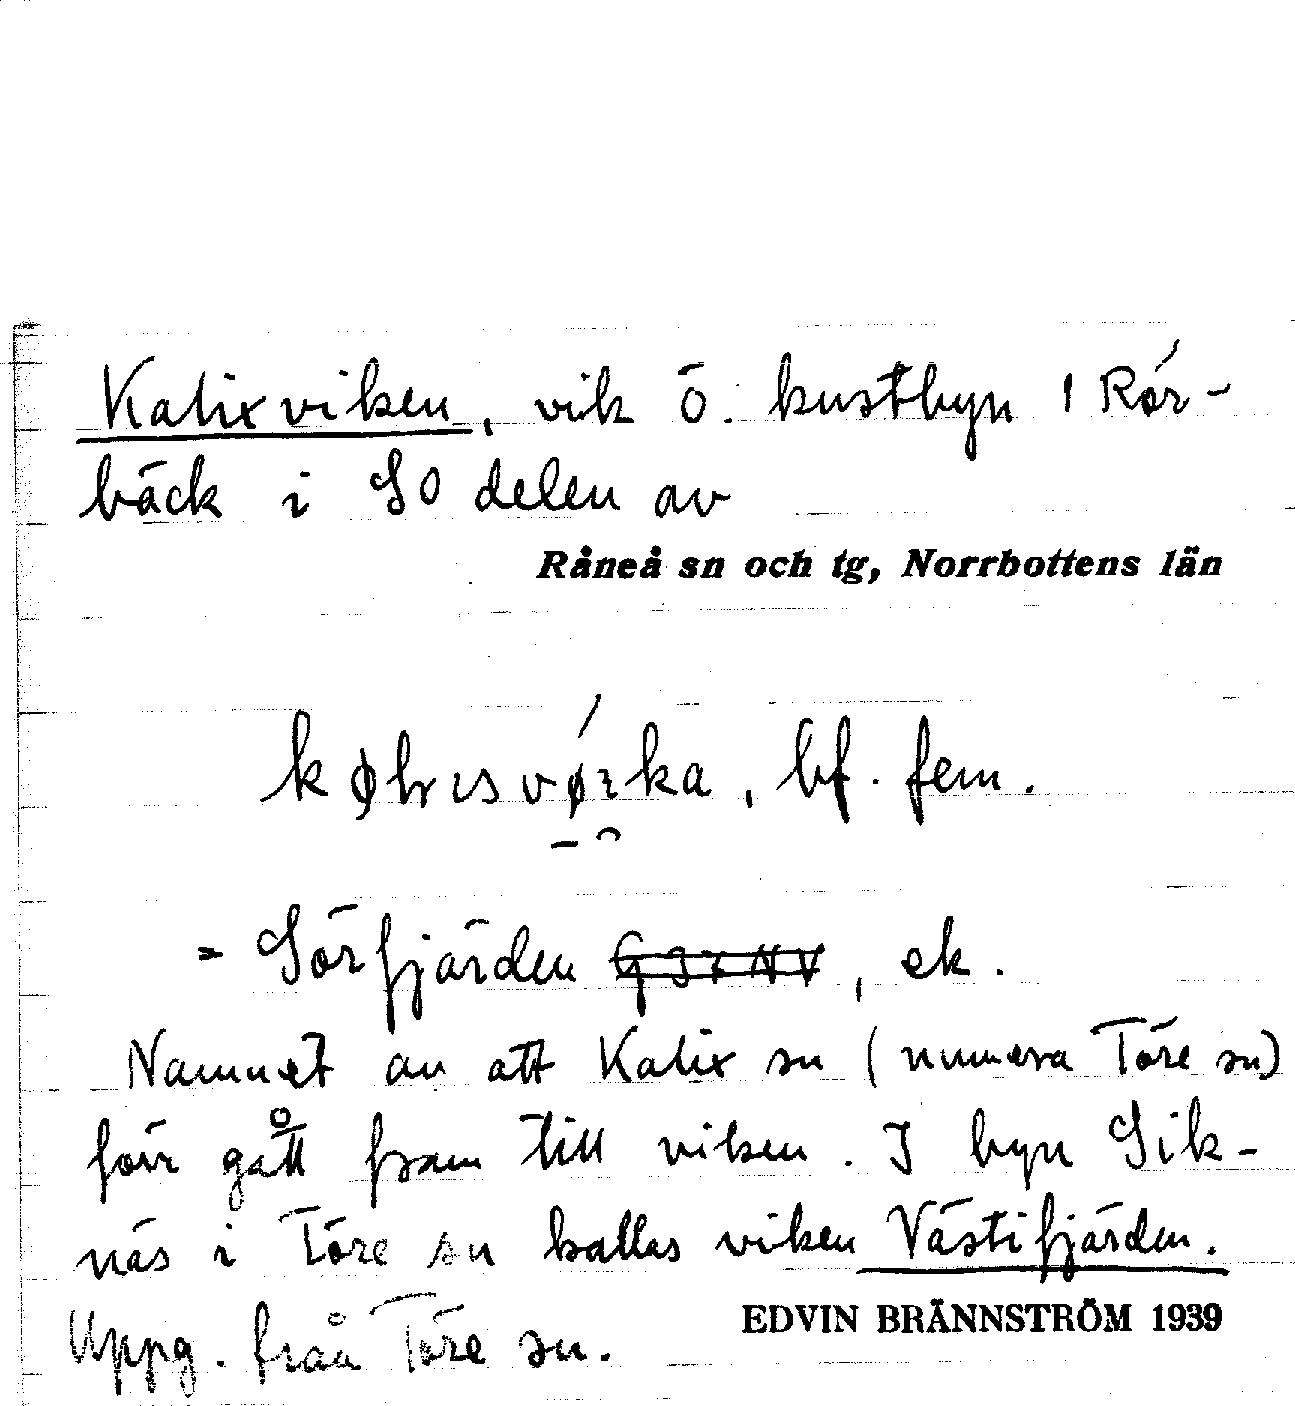 Kalixviken, vik ö. kustbyn 1 Rör-
bäck i SO delen av
Råneå sn och tg, Norrbottens län
bf. fem.
= Sörfjärden , ek.
Namnet av att Kalix sn (numera Töre sn)
förr gått fram till viken. I byn Sik-
näs i Töre sn kallas viken Västifjärden.
Uppg. från Töre sn.
EDVIN BRÄNNSTRÖM 1939